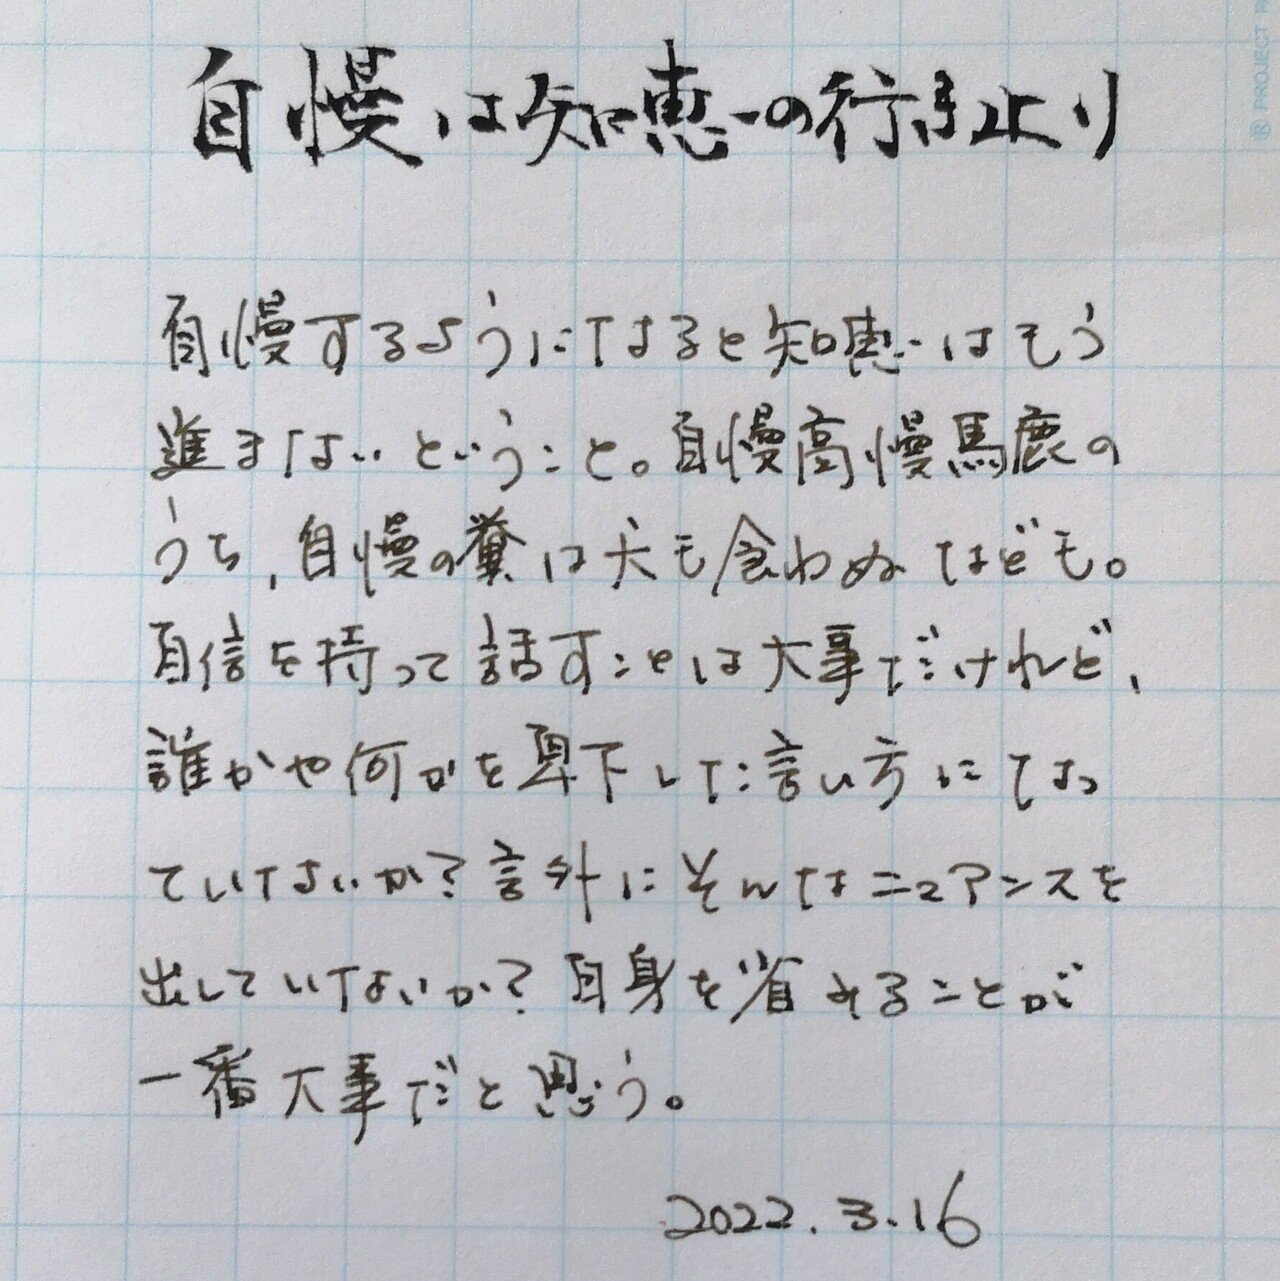 自慢は知恵の行き止り
自慢するようになると知恵はもう
進まないということ。自慢高慢馬鹿の
うち、自慢の糞は犬も食わぬなども。
自信を持って話すことは大事だけれど、
誰かや何かを卑下した言い方になっ
ていないか?言外にそんなニュアンスを
出していないか?自身を省みることが
一番大事だと思う。
2022.3.16